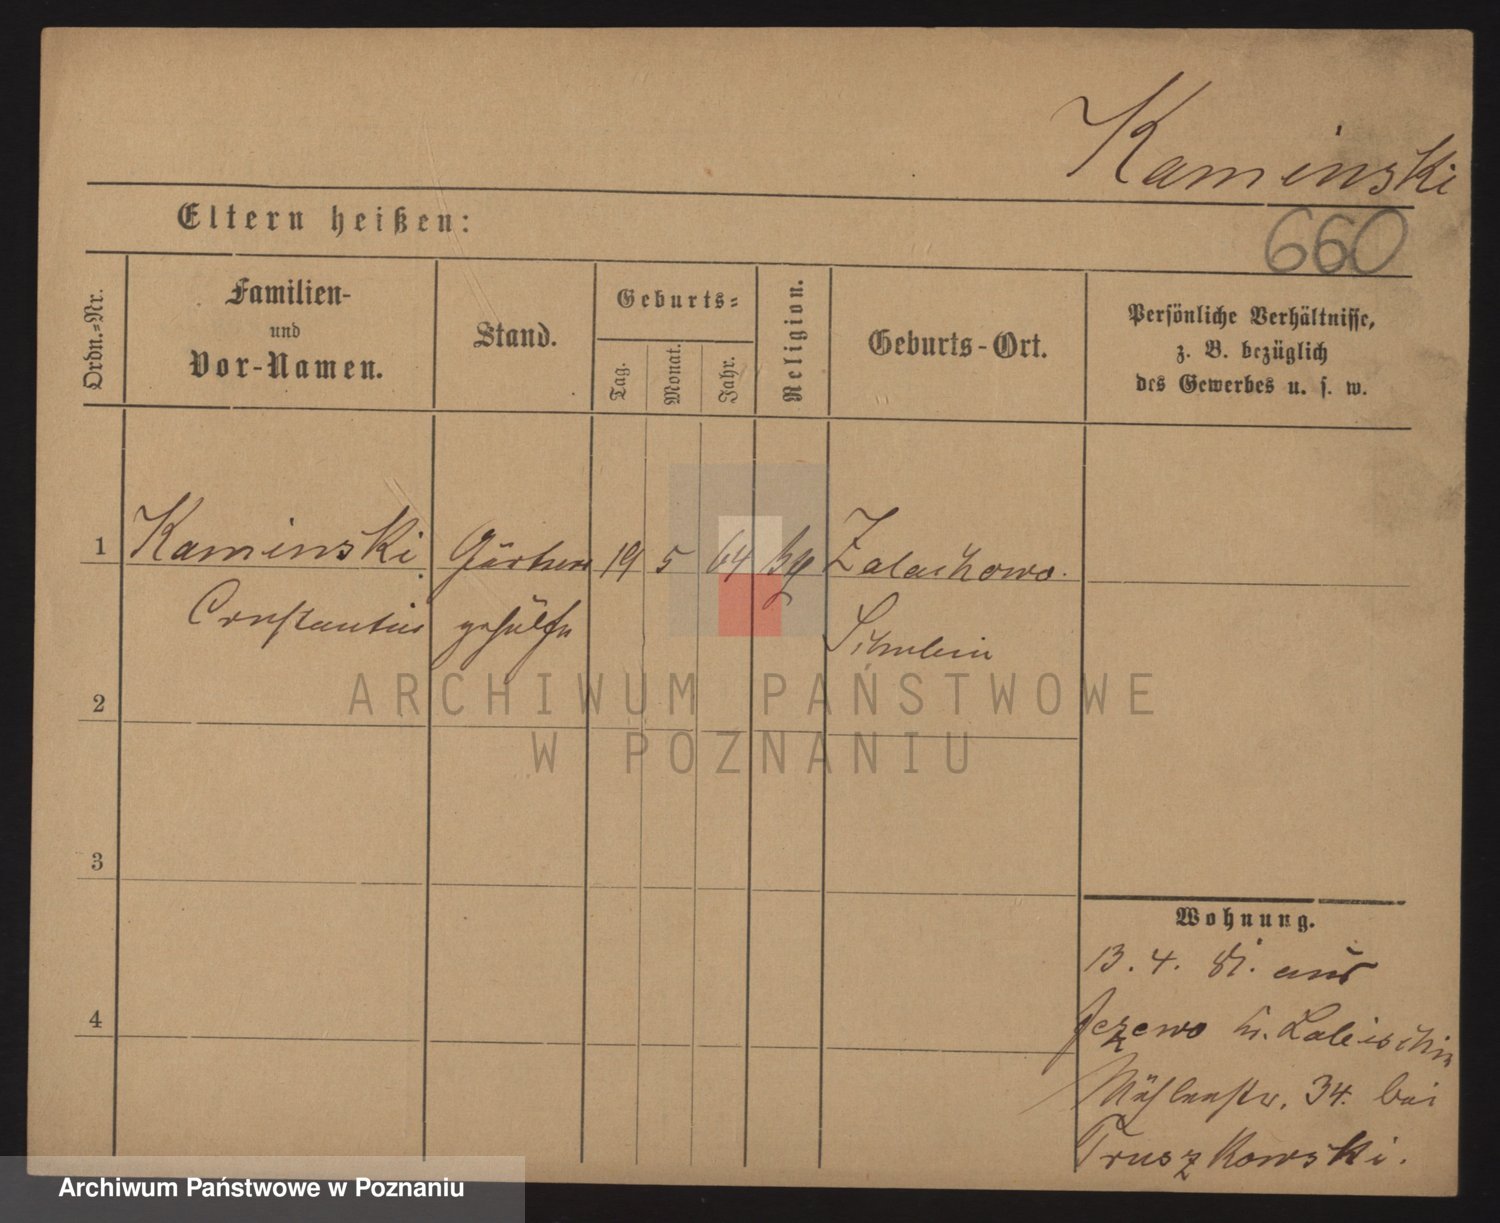 Kaminski
660
Eltern heißen:
Ordn.=Nr.
Familien-
und
Vor-Namen.
Stand.
Geburts=
Tag.
Monat.
Jahr.
Religion.
Geburts-Ort.
Persönliche Verhältnisse,
z. B. bezüglich
des Gewerbes u. s. w.
1 Kaminski Gärtner 19 5 64 Zalachowo.
Constantin gehülfe
2
3
4
Wohnung.
13. 4. 81. aus
Jezewo
Mühlenstr. 34. bei
Truszkowski.
ARCHIWUM PAŃSTWOWE
W POZNANIU
Archiwum Państwowe w Poznaniu